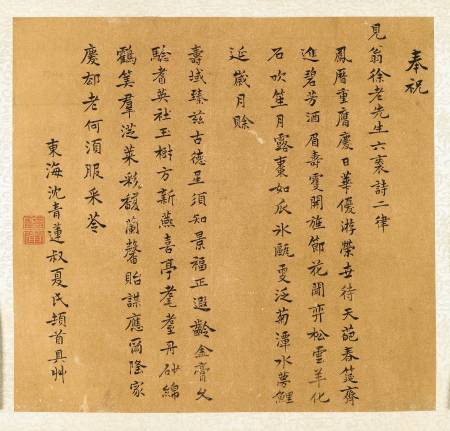 奉祝
見翁徐老先生六袠詩二律
鳳曆重膺慶日華優游榮去待天葩春筵齊
進碧芳酒眉壽更開旌節花閒弈松雲羊化
石吹笙月露棗如瓜氷甌更泛菊潭水夢鯉
延歲月賒
壽域臻茲古德星須知景福正遐齡金膏久
駘耆英社玉樹方新燕喜亭耄耋丹砂綿
鶴筭羣泛萊彩馥蘭馨貽謀應爾隆家
慶郤老何須服采苓
東海沈青蓮叔夏氏頓首具艸